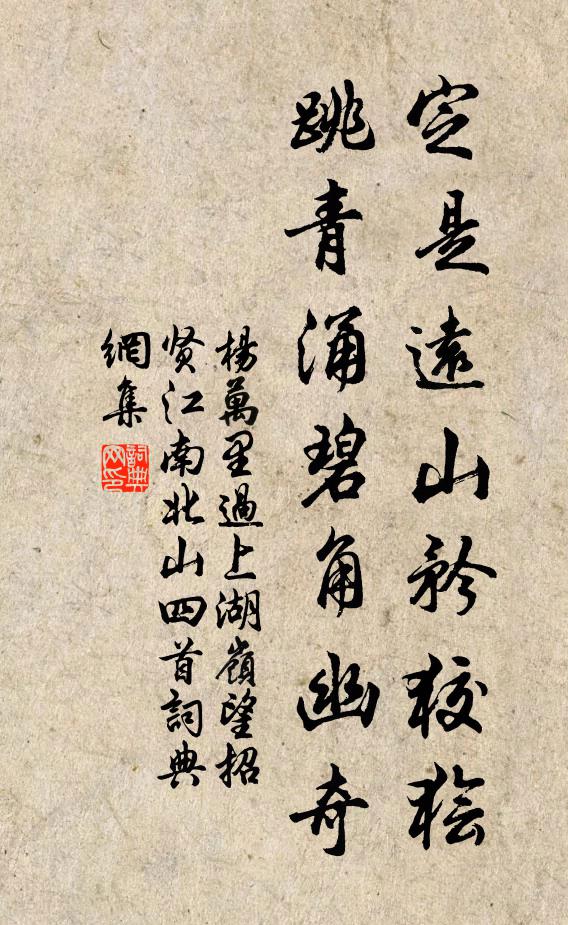 定是遠山矜狡獪
跳青涌碧角幽奇
楊萬里過上湖嶺望招
贤江南北山四首詞典
網集
詞典
网印